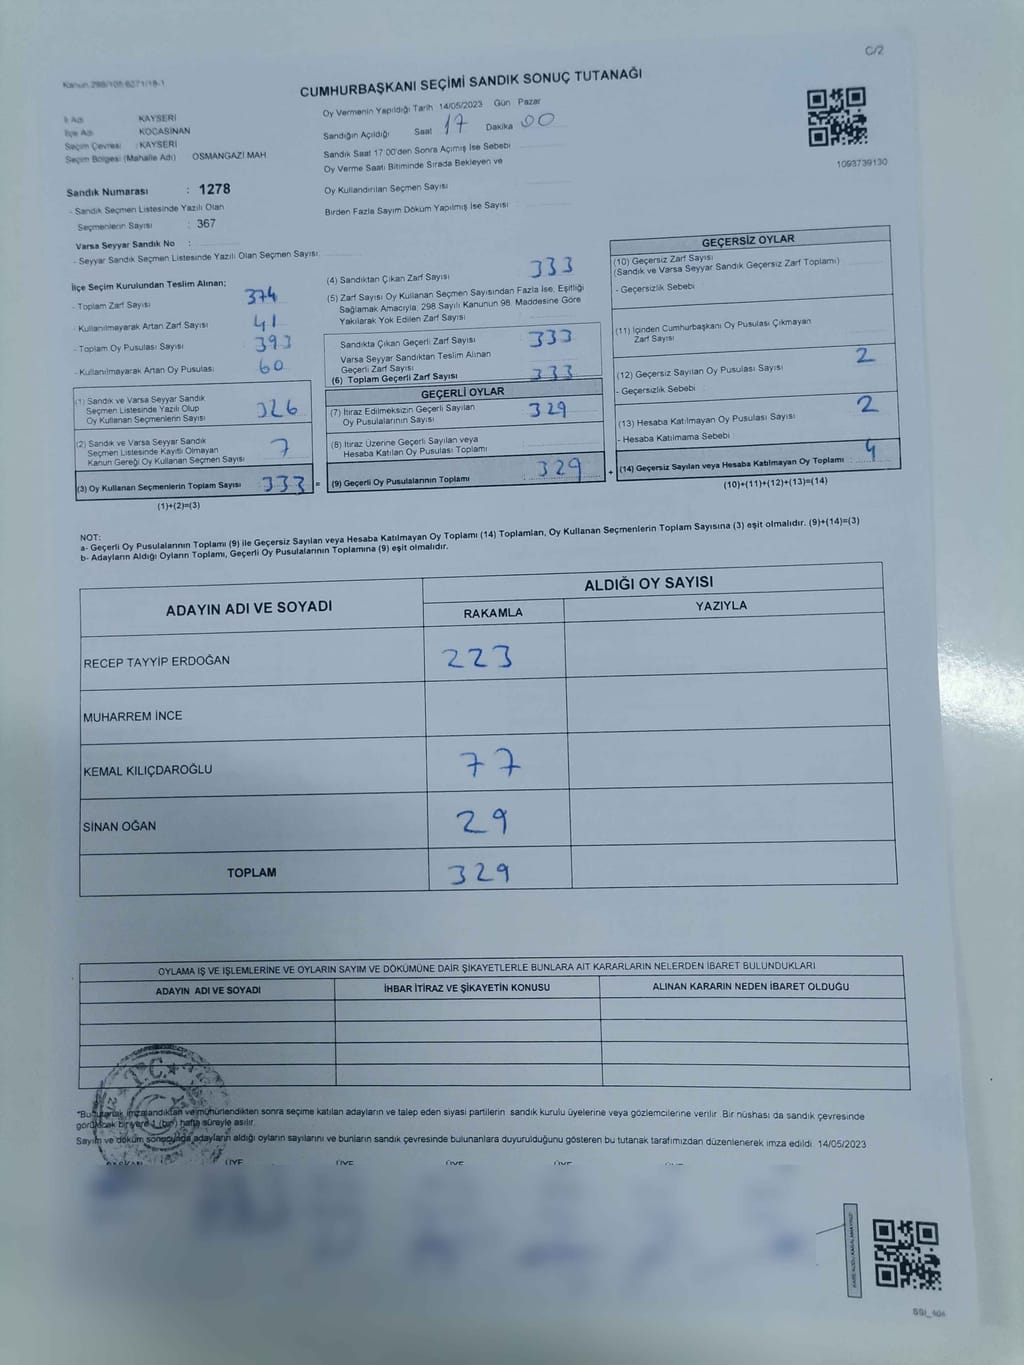 C/2
Kanun 298/105 6271/18-1
CUMHURBAŞKANI SEÇİMİ SANDIK SONUÇ TUTANAĞI
İl Adı KAYSERİ
İlçe Adı KOCASİNAN
Seçim Çevresi : KAYSERİ
Seçim Bölgesi (Mahalle Adı) OSMANGAZİ MAH
Sandık Numarası : 1278
- Sandık Seçmen Listesinde Yazılı Olan
Seçmenlerin Sayısı : 367
Varsa Seyyar Sandık No :
- Seyyar Sandık Seçmen Listesinde Yazılı Olan Seçmen Sayısı:
Oy Vermenin Yapıldığı Tarih 14/05/2023 Gün Pazar
Sandığın Açıldığı Saat 17 Dakika 00
Sandık Saat 17.00'den Sonra Açımış İse Sebebi
Oy Verme Saati Bitiminde Sırada Bekleyen ve
Oy Kullandırılan Seçmen Sayısı
Birden Fazla Sayım Döküm Yapılmış İse Sayısı
1093739130
İlçe Seçim Kurulundan Teslim Alınan;
- Toplam Zarf Sayısı 374
- Kullanılmayarak Artan Zarf Sayısı 41
- Toplam Oy Pusulası Sayısı 393
- Kullanılmayarak Artan Oy Pusulası 60
(1) Sandık ve Varsa Seyyar Sandık
Seçmen Listesinde Yazılı Olup
Oy Kullanan Seçmenlerin Sayısı 326
(2) Sandık ve Varsa Seyyar Sandık
Seçmen Listesinde Kayıtlı Olmayan
Kanun Gereği Oy Kullanan Seçmen Sayısı 7
(3) Oy Kullanan Seçmenlerin Toplam Sayısı : 333 =
(1)+(2)=(3)
(4) Sandıktan Çıkan Zarf Sayısı 333
(5) Zarf Sayısı Oy Kullanan Seçmen Sayısından Fazla İse, Eşitliği
Sağlamak Amacıyla, 298 Sayılı Kanunun 98. Maddesine Göre
Yakılarak Yok Edilen Zarf Sayısı
Sandıkta Çıkan Geçerli Zarf Sayısı 333
Varsa Seyyar Sandıktan Teslim Alınan
Geçerli Zarf Sayısı
(6) Toplam Geçerli Zarf Sayısı 333
GEÇERLİ OYLAR
(7) İtiraz Edimeksizin Geçerli Sayılan
Oy Pusulalarının Sayısı 329
(8) İtiraz Üzerine Geçerli Sayılan veya
Hesaba Katılan Oy Pusulası Toplamı
(9) Geçerli Oy Pusulalarının Toplamı 329 +
GEÇERSİZ OYLAR
(10) Geçersiz Zarf Sayısı
(Sandık ve Varsa Seyyar Sandık Geçersiz Zarf Toplamı)
- Geçersizlik Sebebi
(11) İçinden Cumhurbaşkanı Oy Pusulası Çıkmayan
Zarf Sayısı
(12) Geçersiz Sayılan Oy Pusulası Sayısı 2
- Geçersizlik Sebebi
(13) Hesaba Katılmayan Oy Pusulası Sayısı 2
- Hesaba Katılmama Sebebi
(14) Geçersiz Sayılan veya Hesaba Katılmayan Oy Toplamı : 4
(10)+(11)+(12)+(13)=(14)
NOT:
a- Geçerli Oy Pusulalarının Toplamı (9) ile Geçersiz Sayılan veya Hesaba Katılmayan Oy Toplamı (14) Toplamları, Oy Kullanan Seçmenlerin Toplam Sayısına (3) eşit olmalıdır. (9)+(14)=(3)
b- Adayların Aldığı Oyların Toplamı, Geçerli Oy Pusulalarının Toplamına (9) eşit olmalıdır.
ADAYIN ADI VE SOYADI ALDIĞI OY SAYISI
RAKAMLA YAZIYLA
RECEP TAYYİP ERDOĞAN 223
MUHARREM İNCE
KEMAL KILIÇDAROĞLU 77
SİNAN OĞAN 29
TOPLAM 329
OYLAMA İŞ VE İŞLEMLERİNE VE OYLARIN SAYIM VE DÖKÜMÜNE DAİR ŞİKAYETLERLE BUNLARA AİT KARARLARIN NELERDEN İBARET BULUNDUKLARI
ADAYIN ADI VE SOYADI İHBAR İTİRAZ VE ŞİKAYETİN KONUSU ALINAN KARARIN NEDEN İBARET OLDUĞU
T.C.
"Bu tutanak imzalandıktan ve mühürlendikten sonra seçime katılan adayların ve talep eden siyasi partilerin sandık kurulu üyelerine veya gözlemcilerine verilir. Bir nüshası da sandık çevresinde
görülecek bir yere 1 (bir) hafta süreyle asılır.
Sayım ve döküm sonucunda adayların aldığı oyların sayılarını ve bunların sandık çevresinde bulunanlara duyurulduğunu gösteren bu tutanak tarafımızdan düzenlenerek imza edildi. 14/05/2023
BAŞKAN ÜYE ÜYE ÜYE ÜYE ÜYE
SSI_404